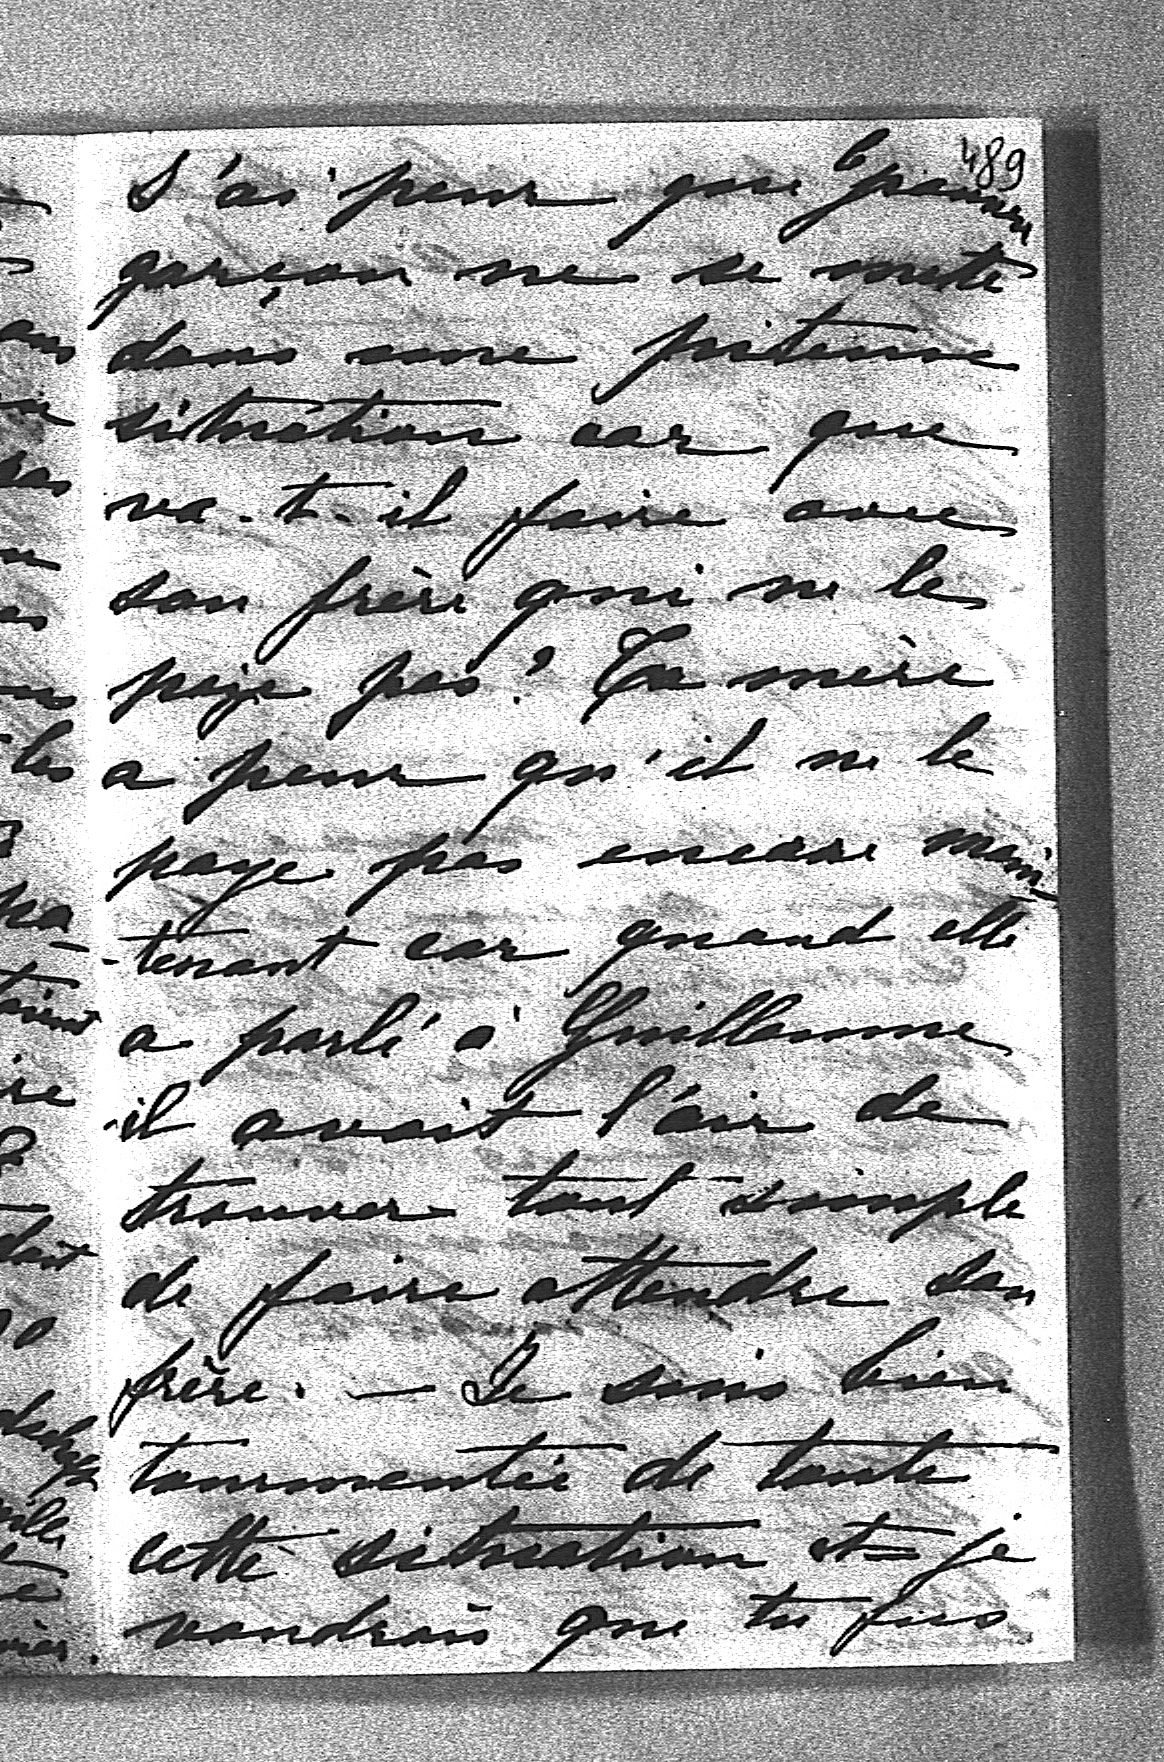 489
J'ai peur que le pauvre
garçon ne se mette
dans une piteuse
situation car que
va-t-il faire avec
son frère qui ne le
paye pas? Ta mère
a peur qu'il ne le
paye pas encore main-
-tenant car quand elle
a parlé à Guillaume
il avait l'air de
trouver tout simple
de faire attendre son
frère. — Je suis bien
tourmentée de toute
cette situation et je
voudrais que tu fus